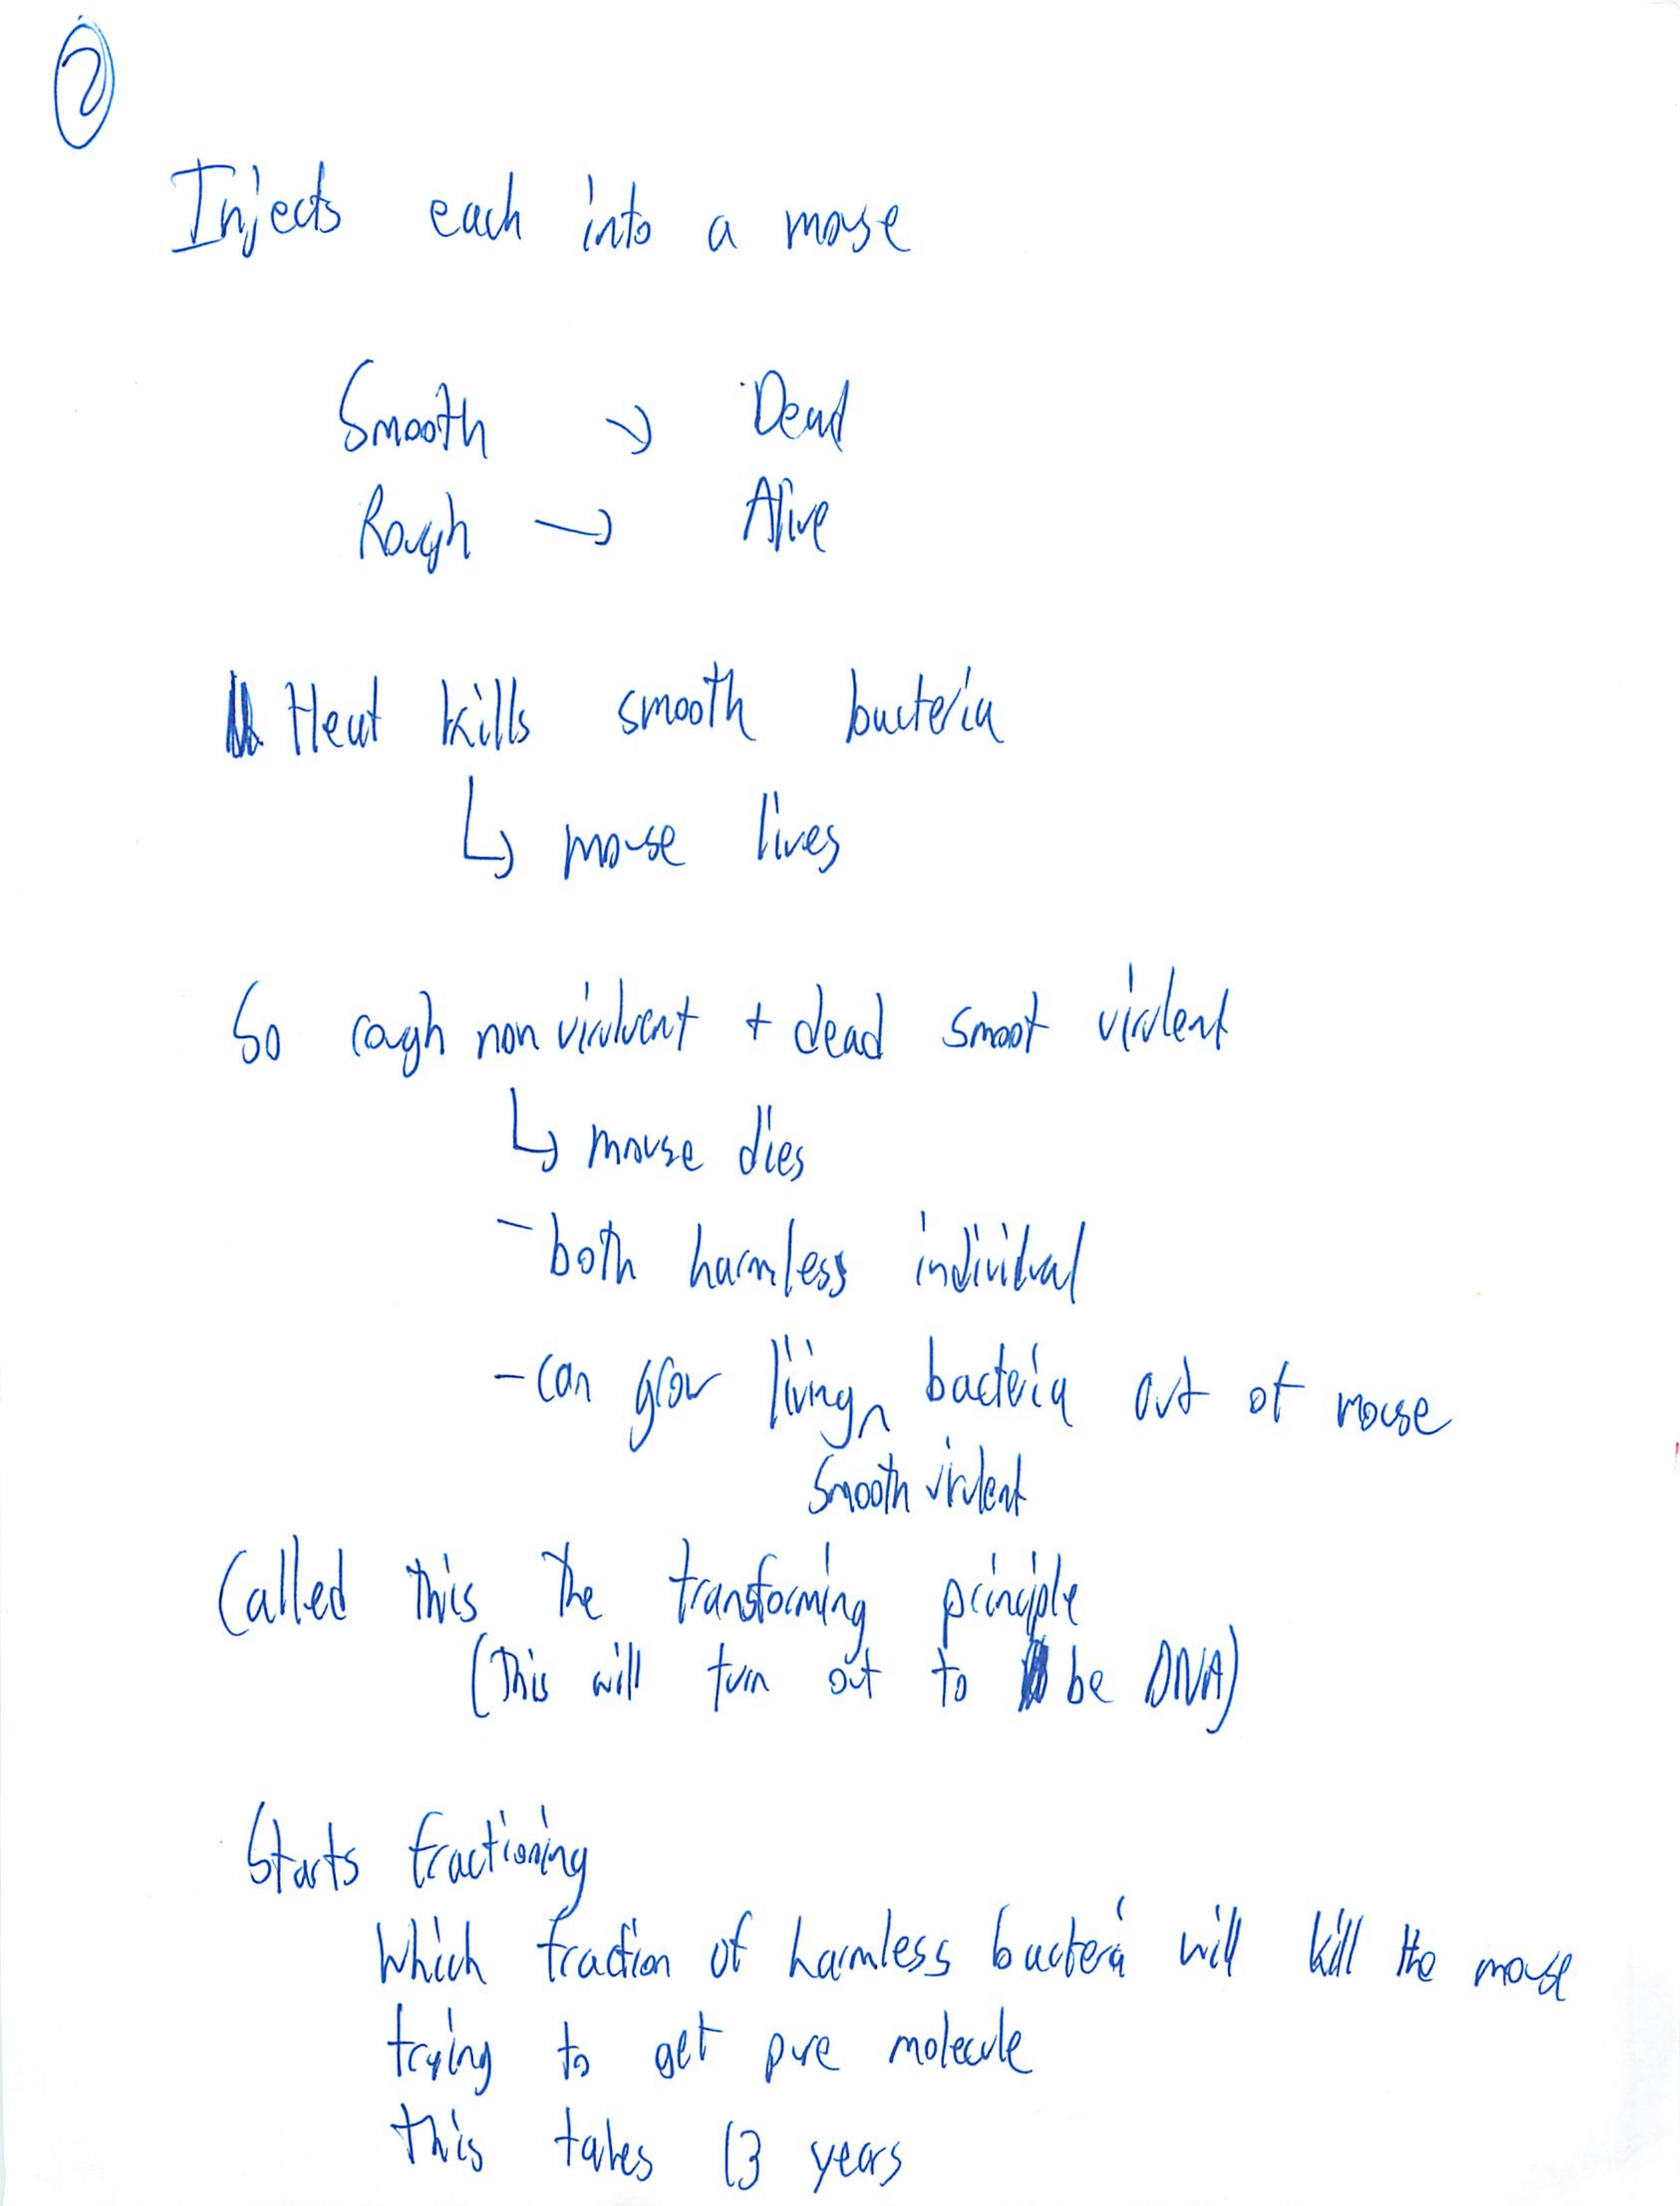 2
Injects each into a mouse
Smooth → Dead
Rough → Alive
Heat kills smooth bacteria
↳ mouse lives
So rough non virulvent + dead smoot virulent
↳ mouse dies
- both harmless individual
- can grow living bacteria out of mouse
smooth virulent
Called this the transforming principle
(This will turn out to be DNA)
Starts fractioning
Which fraction of harmless bacteria will kill the mouse
trying to get pure molecule
this takes 13 years